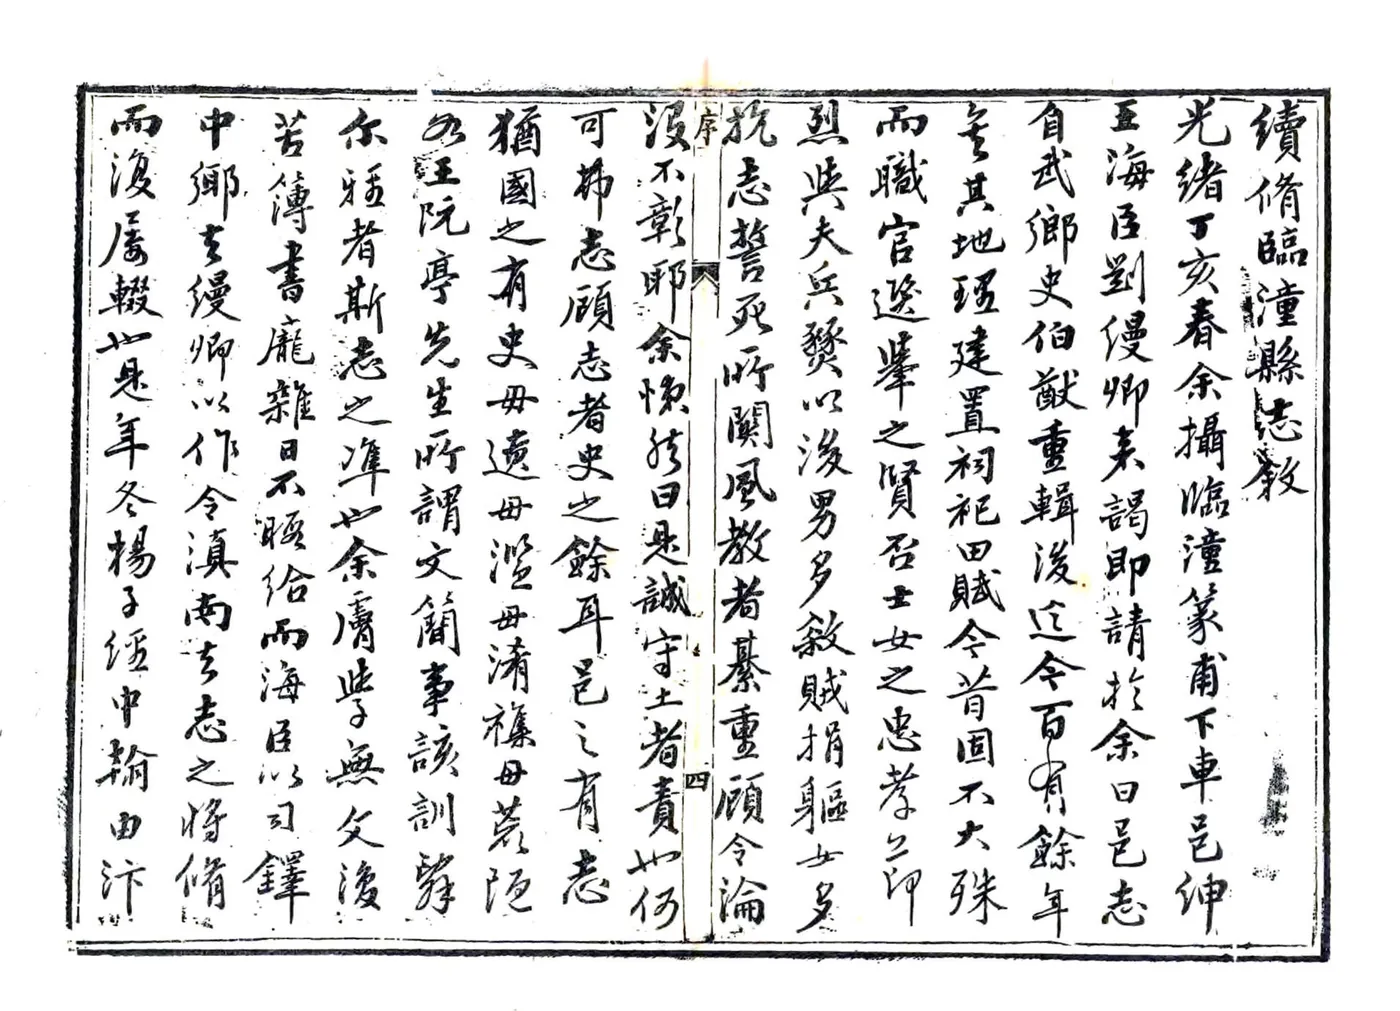 續脩臨潼縣志敘
光緒丁亥春余攝臨潼篆甫下車邑紳
王海臣劉縵卿來謁即請於余曰邑志
自武鄉史伯猷重輯後迄今百有餘年
矣其地理建置祠祀田賦今昔固不大殊
而職官選舉之賢否士女之忠孝公卹
烈與夫兵燹以後男多殺賊捐軀女多
抗志誓死所關風教者綦重顧令論
沒不彰耶余愀然曰是誠守土者責也何
可弗志顧志者史之餘耳邑之有志
猶國之有史毋遺毋濫毋淆襍毋蕪陋
如王阮亭先生所謂文簡事該訓辭
尒雅者斯志之準也余膚學無文復
苦簿書龐雜日不暇給而海臣以司鐸
中鄉去縵卿以作令滇南去志之將脩
而復屢輟也是年冬楊子經中翰由汴
序
四